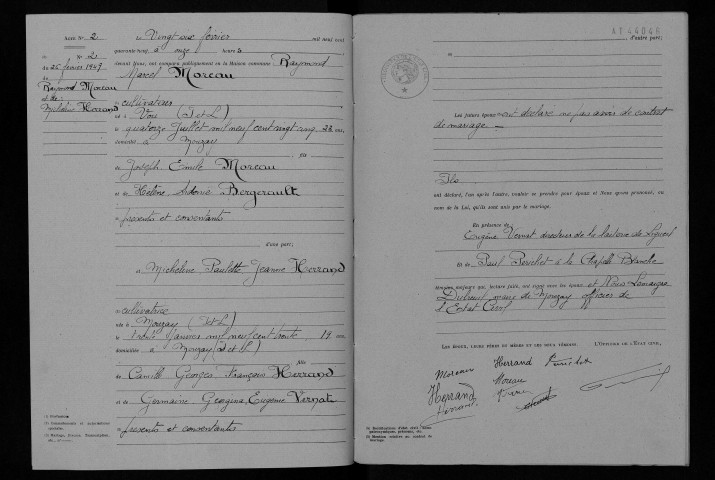 Acte No 2
No 2
du 25 février 1949
de
Raymond Moreau
et de
Micheline Herrand
Le Vingt six février mil neuf cent
quarante neuf, à onze heures
devant Nous, ont comparu publiquement en la Maison commune Raymond
Marcel Moreau
cultivateur
né à Vou (I et L)
le quatorze Juillet mil neuf cent vingt cinq 23 ans,
domicilié à Mouzay
fils
de Joseph Emile Moreau
et de Hélène Bergerault
présents et consentants
d'une part;
et Micheline Paulette Jeanne Herrand
cultivatrice
née à Mouzay (I et L)
le trente janvier mil neuf cent trente 19 ans,
domiciliée à Mouzay (I et L)
fille
de Camille Georges François Herrand
et de Germaine Georgina Eugénie Vernat
présents et consentants
AT 44048
d'autre part;
Les futurs époux ont déclaré ne pas avoir de contrat
de mariage
Ils
ont déclaré, l'un après l'autre, vouloir se prendre pour époux et Nous avons prononcé, au
nom de la Loi, qu'ils sont unis par le mariage.
En présence de
Eugène Vernat directeur de la laiterie de Ligueil
et de Paul à la Chapelle Blanche
témoins majeurs qui, lecture faite, ont signé avec les époux et Nous Lemaigre
Dubreuil maire de Mouzay officier de
l'Etat Civil
LES ÉPOUX, LEURS PÈRES ET MÈRES ET LES DEUX TÉMOINS L'OFFICIER DE L'ÉTAT CIVIL,
Moreau Herrand
Herrand Moreau
Herrand